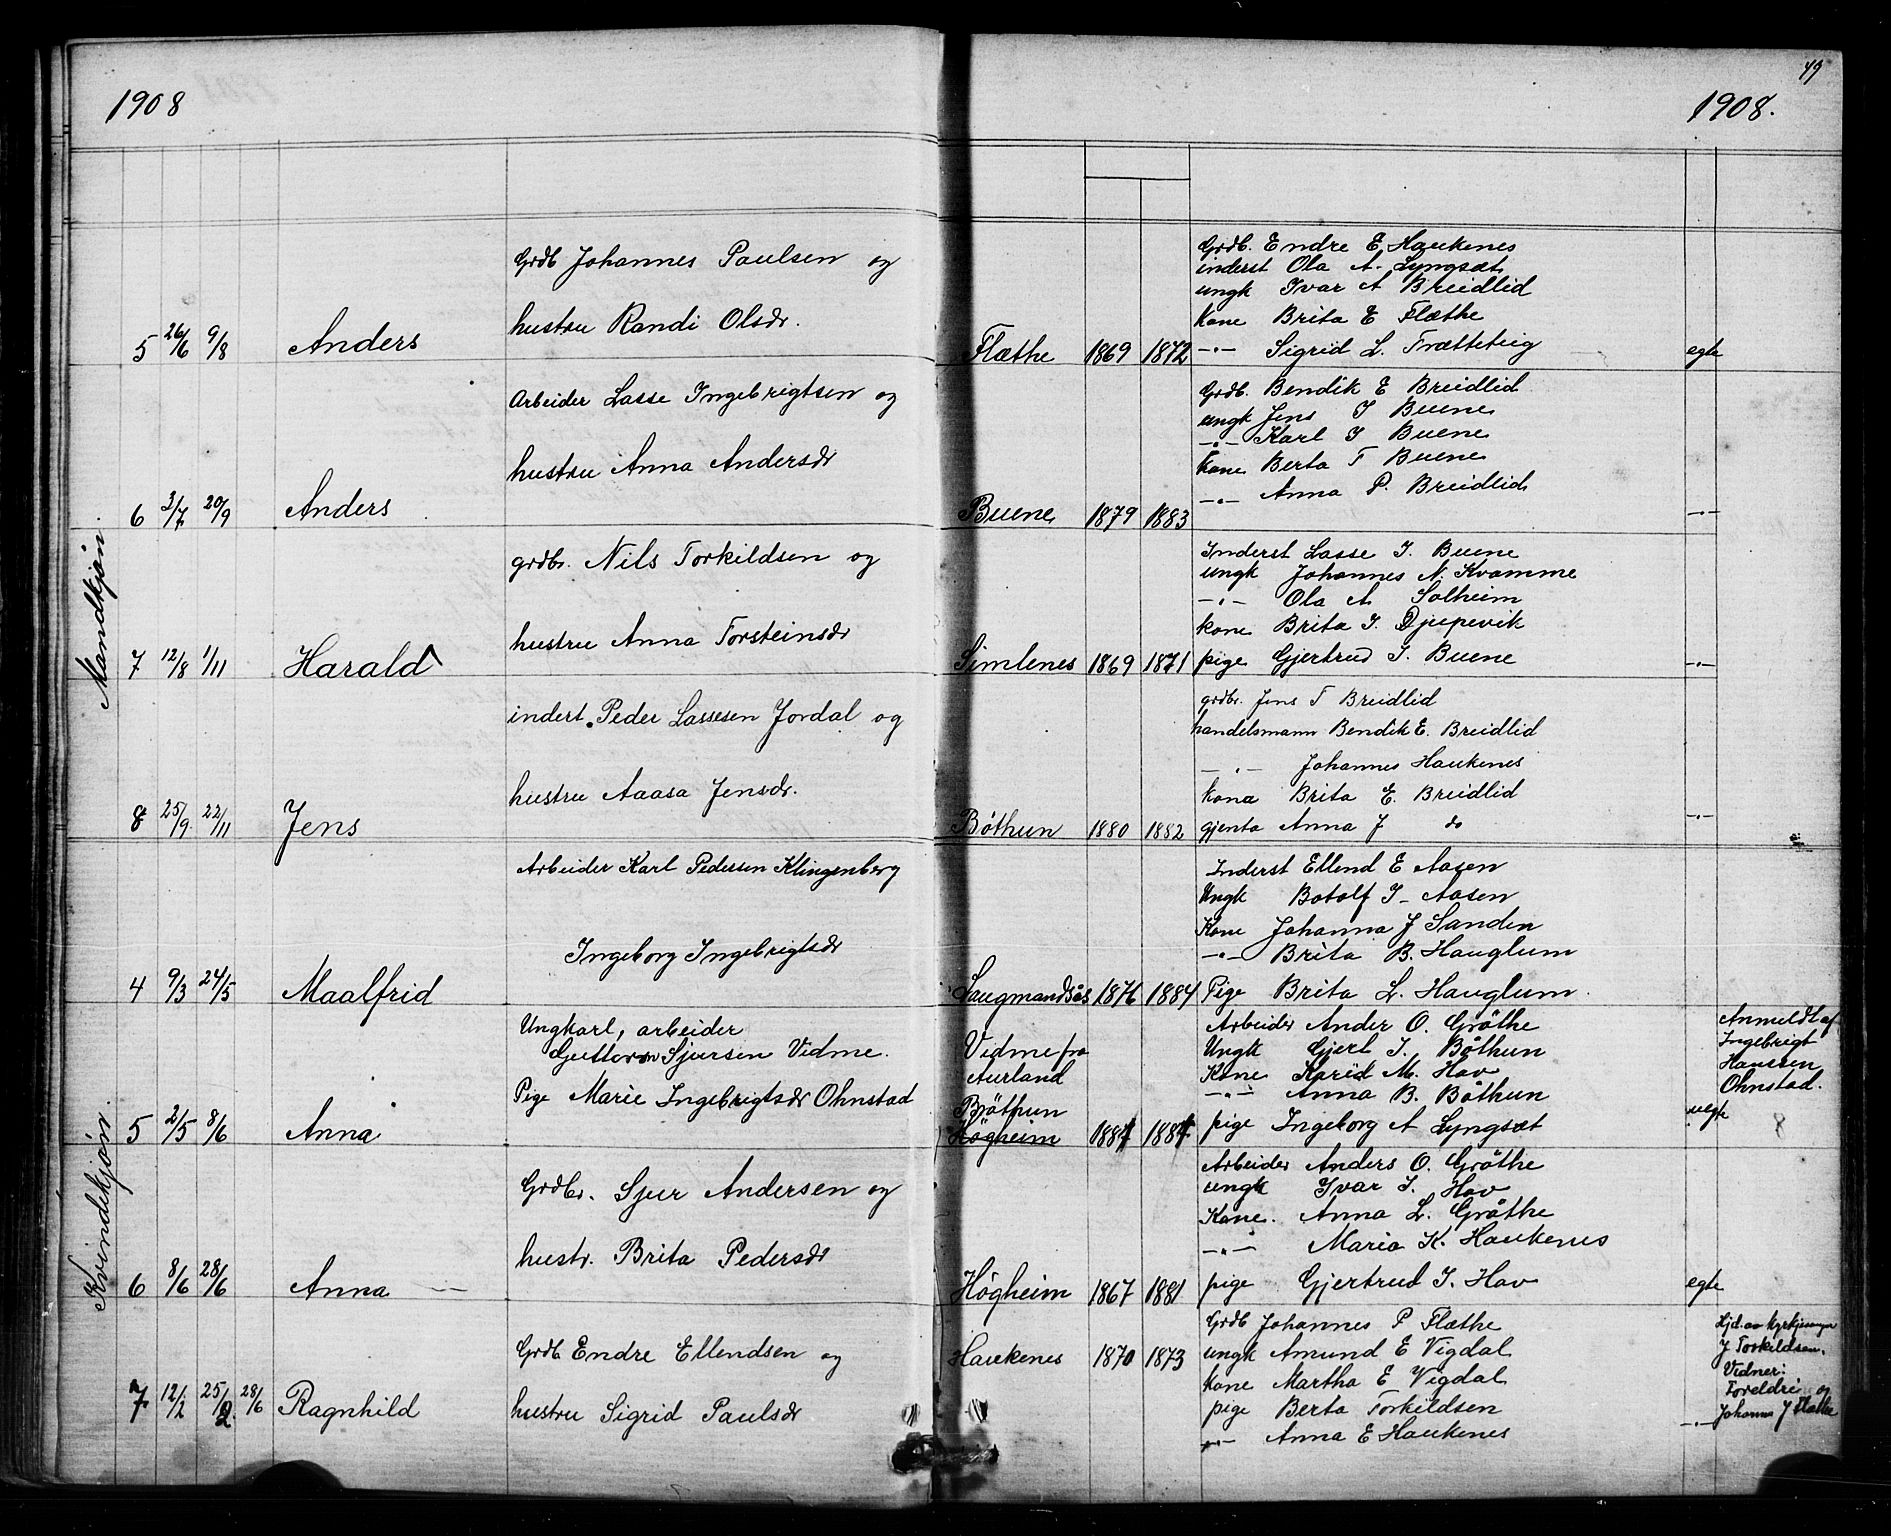 49
1908
1908.
Mandkjøn.
Grdb Johannes Paulsen og
hustru Randi Olsdr.
5 26/6 9/8 Anders
Flæthe 1869 1872
Grdb. Endre E. Haukenes
inderst Ola A. Lyngsæt
ungk Ivar A Breidlid
Kone Brita E Flæthe
-"- Sigrid L. Trætteteig
egte
Arbeider Lasse Ingebrigtsen og
hustru Anna Andersdr
6 3/7 20/9 Anders
Buene 1879 1883
Grdb. Bendik E Breidlid
ungk Jens I Buene
-"- Karl I Buene
kone Berta T Buene
-"- Anna P. Breidlid
-"-
grdbr. Nils Torkildsen og
hustru Anna Torsteinsdr
7 12/8 1/11 Harald
Simlenes 1869 1871
Inderst Lasse I. Buene
ungk Johannes N. Kvamme
-"- Ola A Solheim
kone Brita I. Djupevik
pige Gjertrud I. Buene
-"-
indert. Peder Lassesen Jordal og
hustru Aaasa Jensdr.
8 25/9 22/11 Jens
Bøthun 1880 1882
grdbr. Jens T Breidlid
handelsmann Bendik E. Breidlid
-"- Johannes Haukenes
kona Brita E. Breidlid
gjenta Anna J do
-"-
Kvindekjøn.
Arbeider Karl Pedersen Klingenberg
Ingeborg Ingebrigtsdr
4 9/3 24/5 Maalfrid
Laugmandsås 1876 1884
Inderst Ellend E Aasen
Ungk Botolf I- Aasen
Kone Johanna J Sanden
-"- Brita B. Hauglum
Pige Brita L. Hauglum.
Ungkarl, arbeider
Guttorm Sjursen Vidme.
Pige Marie Ingebrigtsdr Ohnstad
5 2/5 8/6 Anna
Vidme fra
Aurland
Bøthun
Høgheim 1887 1884
Arbeider Ander O. Grøthe
Ungk Gjert I. Bøthun
Kone Karid M. Hov
-"- Anna B. Bøthun
pige Ingeborg A Lyngsæt
uegte
Anmeldt af
Ingebrigt
Hanssen
Ohnstad.
8
Grdbr. Sjur Andersen og
hustr. Brita Pedersdr
6 8/6 28/6 Anna
Høgheim 1867 1881
Arbeider Anders O. Grøthe
ungk Ivar I. Hov
Kone. Anna L. Grøthe
-"- Maria K. Haukenes
pige Gjertrud I. Hov
egte
Grdb Endre Ellendsen og
hustru Sigrid Paulsdr
7 12/2 25/2 28/6 Ragnhild
Haukenes 1870 1873
Grdb Johannes P Flæthe
ungk Amund E Vigdal
kone Martha E Vigdal
pige Berta Torkildsen
-"- Anna E Haukenes
-"-
Hjd. av kyrkjesongar
J Torkildsen.
Vidner:
Foreldri og
Johannes J Flæthe